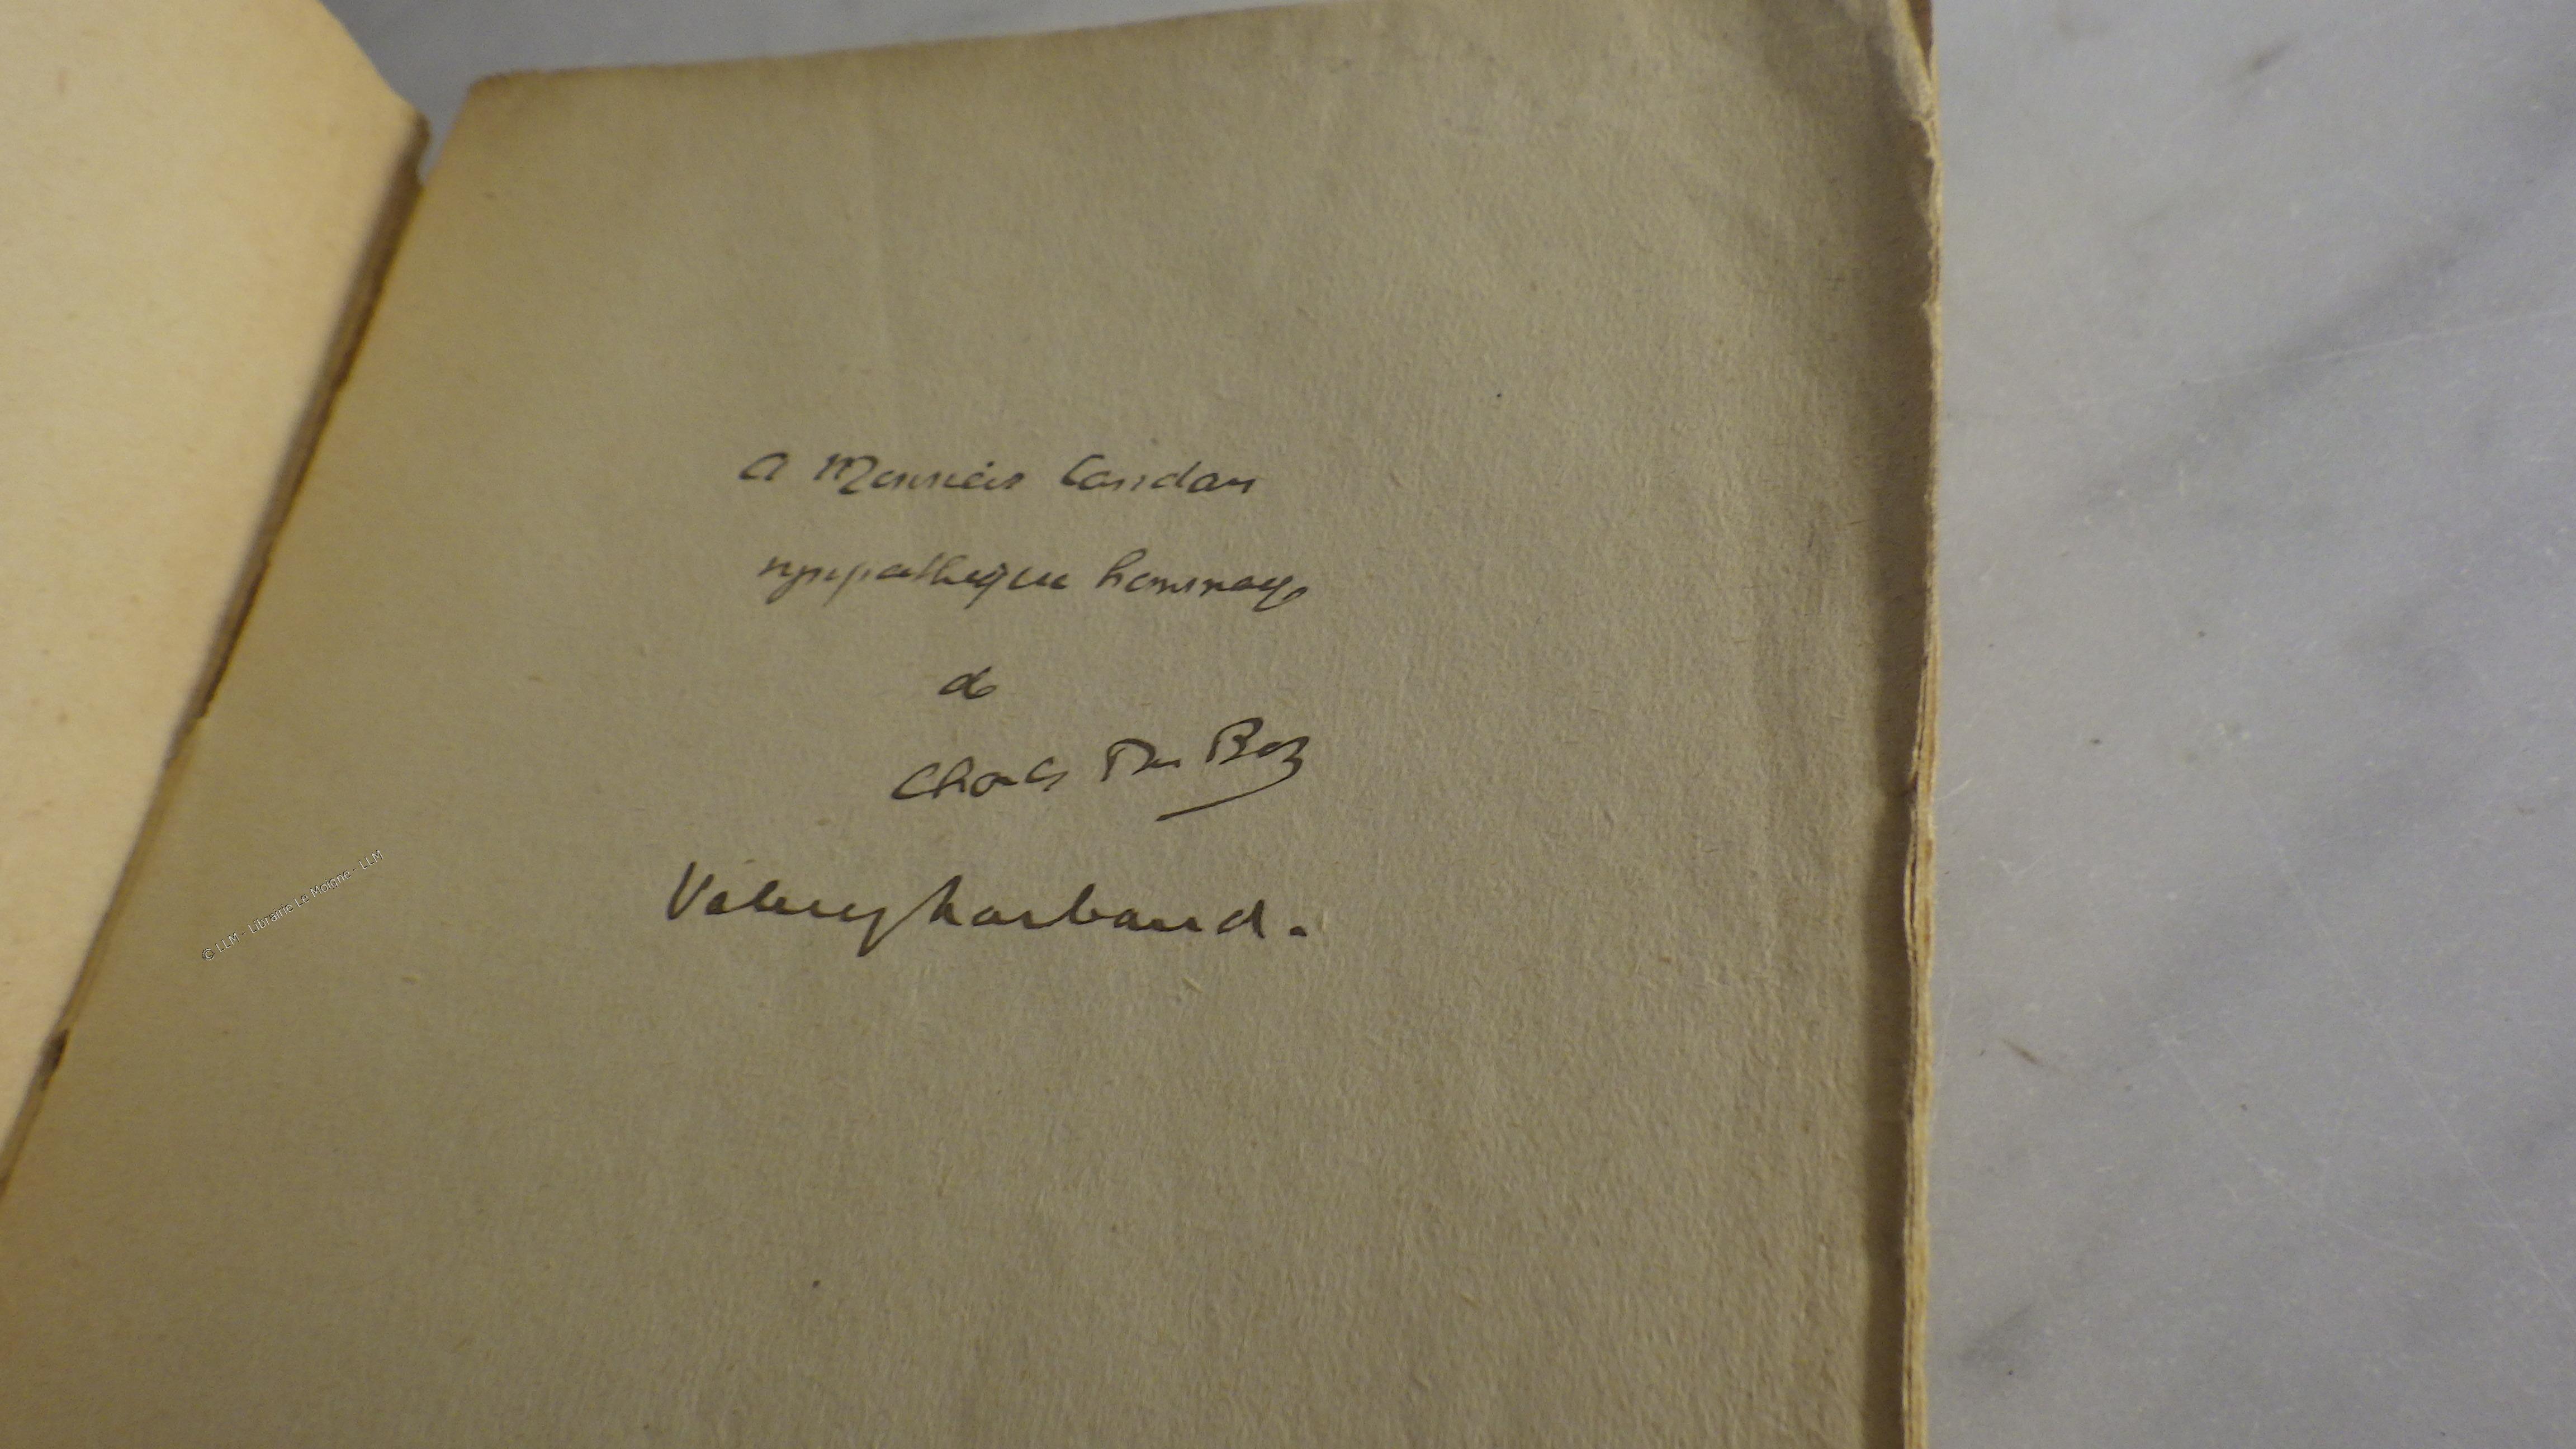 A Monsieur Candau
sympathique hommage
de
Charles Du Bos
Valery Larbaud.
© LLM - Librairie Le Moigne - LLM